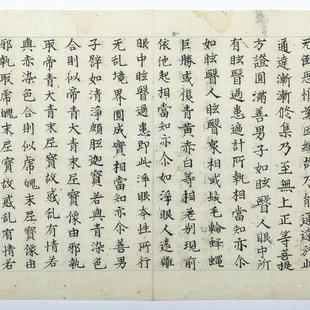 无倒思惟為因緣故乃能通達於此
通達漸漸修集乃至無上正等菩提
方證圓滿善男子如眩瞖人眼中所
有眩瞖過患遍計所執相當知亦尒
如眩瞖人眩瞖衆相或髮毛輪蜂蠅
巨勝或復青黃赤白等相差別現前
依他起相當知亦尒如淨眼人遠離
眼中眩瞖過患即此淨眼本性所行
无亂境界圓成實相當知亦尒善男
子譬如清淨頗胝迦寶若與青染色
合則似帝青大青末尼寶像由邪執
取帝青大青末尼寶故惑亂有情若
與赤染色合則似虎魄末尼寶像由
邪執取虎魄末尼寶故惑亂有情若